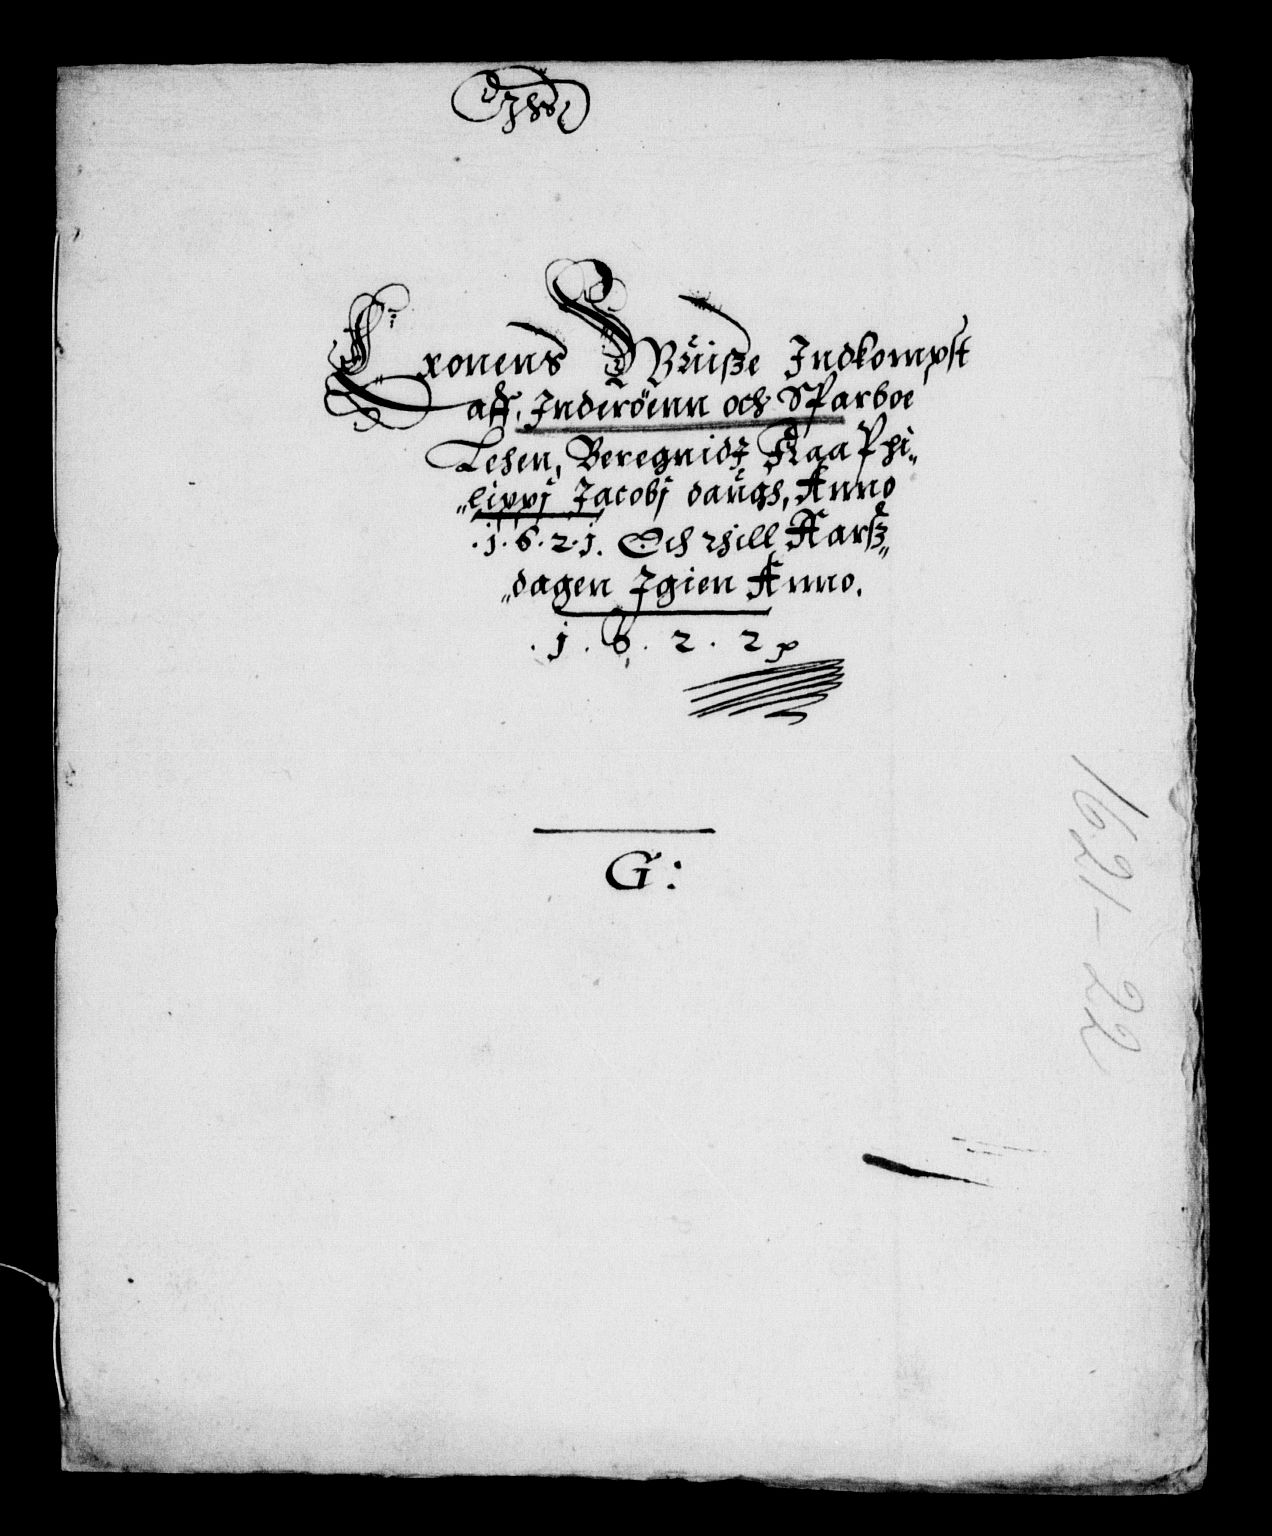 Cronens Wuiße Indkompst
aff, Inderöenn och Sparboe
Lehen, Beregnidt Fraa Phi„
„lippj Jacobj daugh, Anno
.1.6.2.1. Och thill Aarß„
„dagen Igien Anno.
.1.6.2.2
G:
1621-22